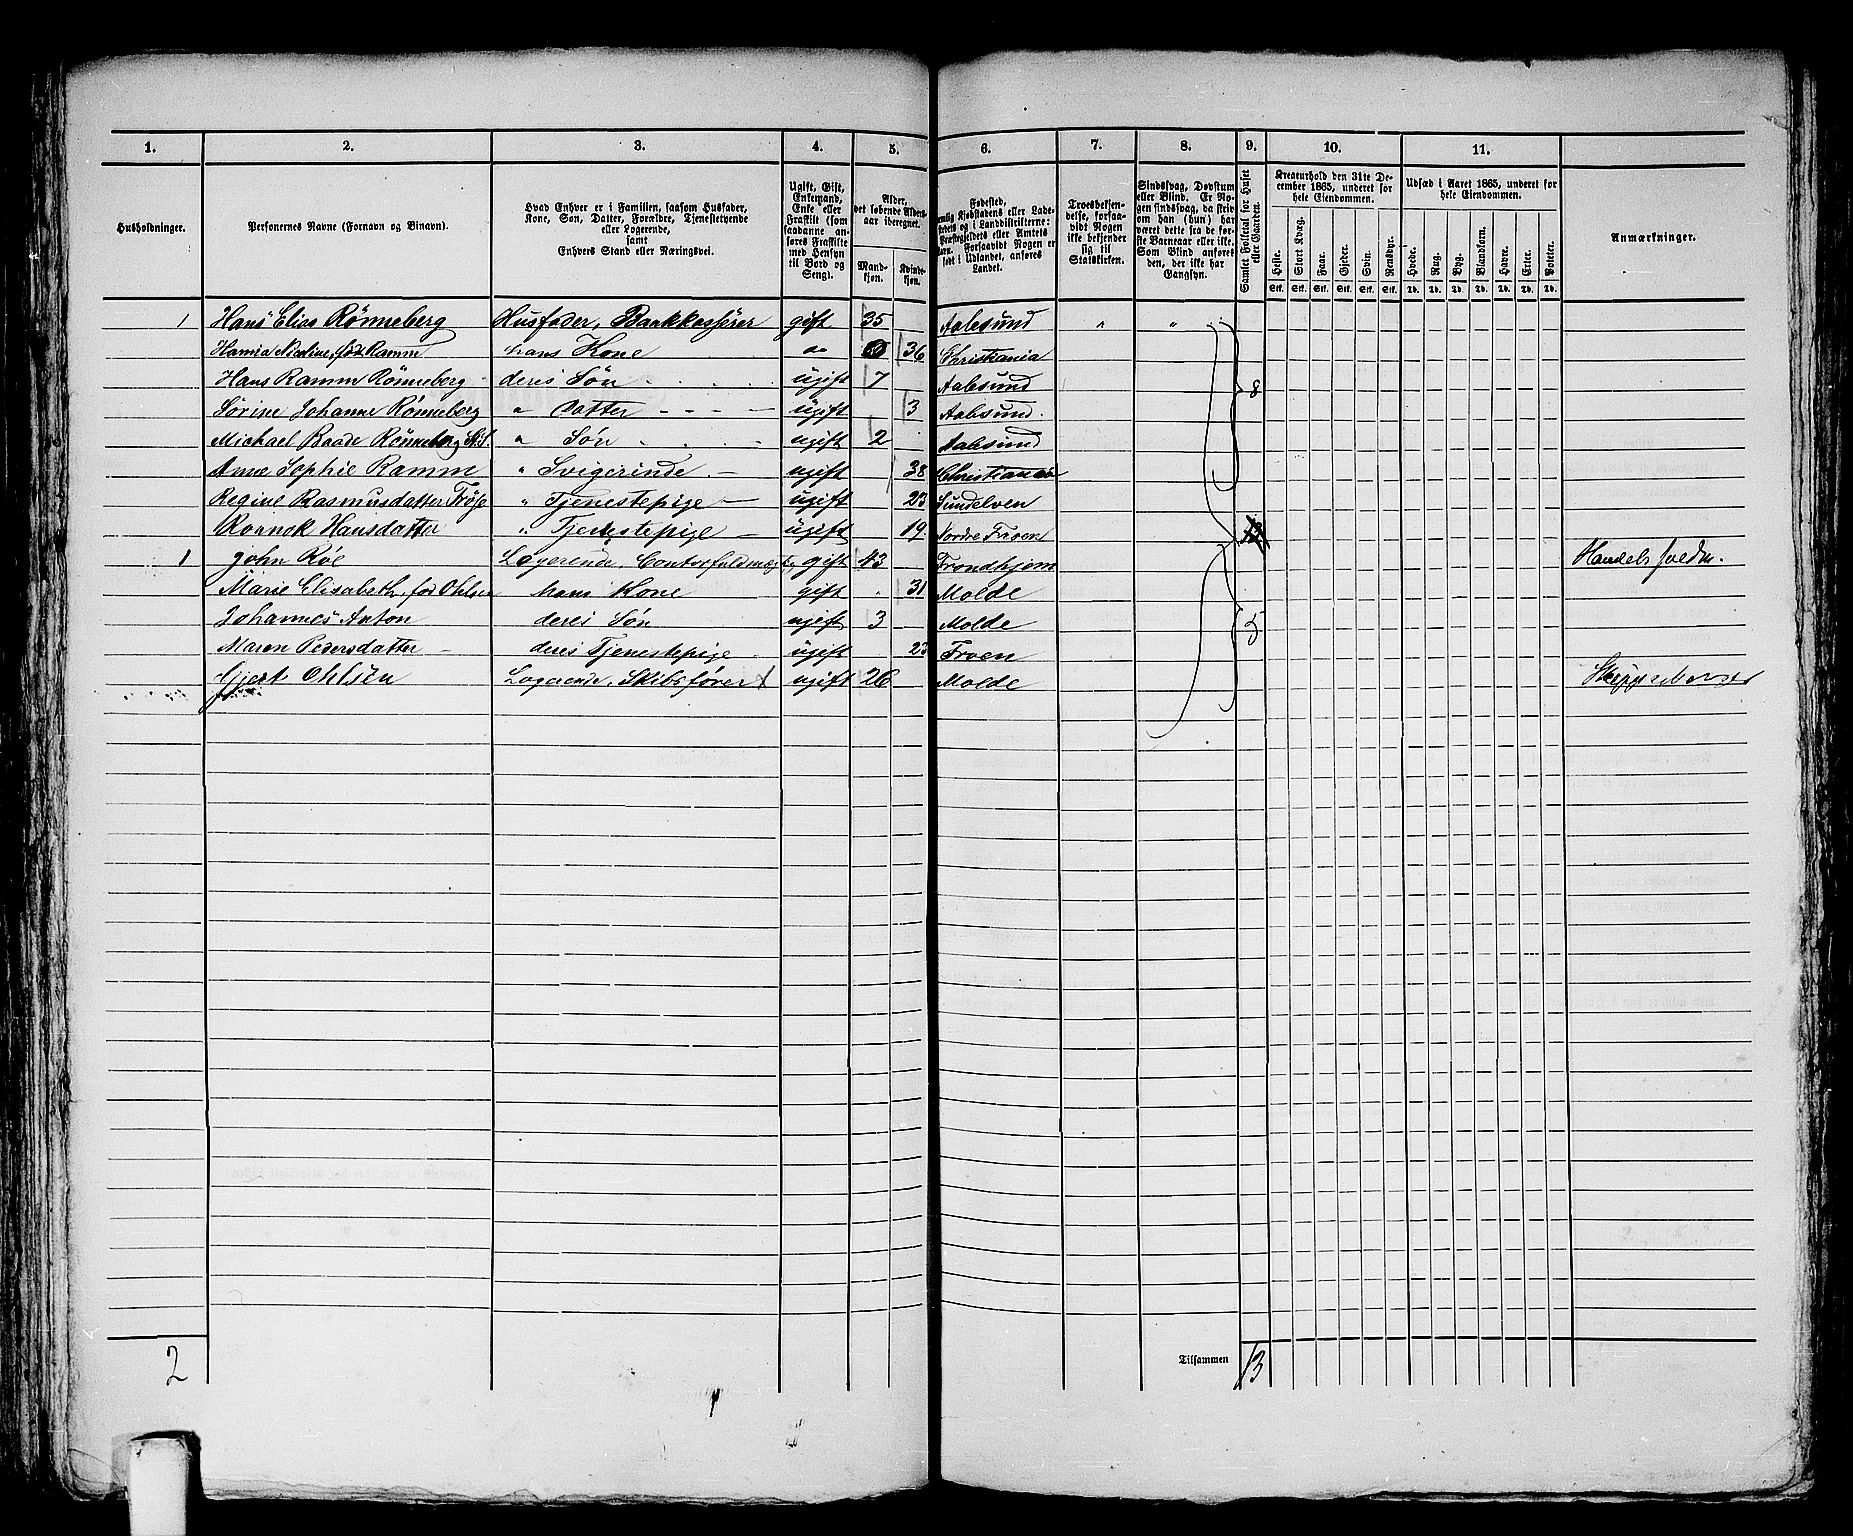 1. 2. 3. 4. 5. 6. 7. 8. 9. 10. 11.
Husholdninger.
Personernes Navne (Fornavn og Binavn).
Hvad Enhver er i Familien, saasom Husfader,
Kone, Søn, Datter, Forældre, Tjenestetyende
eller Logerende,
samt
Enhvers Stand eller Næringsvei.
Ugift, Gift,
Enkemand,
Enke eller
Fraskilt (som
saadanne an-
føres Fraskilte
med Hensyn
til Bord og
Seng).
Alder,
det løbende Alders-
aar iberegnet.
Mand-
kjøn.
Kvinde-
kjøn.
Fødested,
nemlig Kjøbstadens eller Lade-
stedets og i Landdistrikterne:
Præstegjeldets eller Amtets
Navn. Forsaavidt Nogen er
født i Udlandet, anføres
Landet.
Troesbekjen-
delse, forsaa-
vidt Nogen
ikke bekjender
sig til
Statskirken.
Sindssvag, Døvstum
eller Blind. Er No-
gen sindssvag, da skrives
om han (hun) har
været dette fra de før-
ste Barneaar eller ikke.
Som Blind anføres
den, der ikke har
Gangsyn.
Samlet Folketal for Huset
eller Gaarden.
Kreaturhold den 31te De-
cember 1865, underet for
hele Eiendommen.
Heste. Stort Kvæg. Faar. Gjeder. Svin. Rensdyr.
Stk. Stk. Stk. Stk. Stk. Stk.
Udsæd i Aaret 1865, underet for
hele Eiendommen.
Hvede. Rug. Byg. Blandkorn. Havre. Erter. Poteter.
Td. Td. Td. Td. Td. Td. Td.
Anmærkninger.
1 Hans Elias Rønneberg Husfader, Bankkasserer gift 35 Aalesund " "
Hanna Nicoline, fød Ramm hans Kone " 36 Christiania
Hans Ramm Rønneberg deres Søn ugift 7 Aalesund 8
Sørine Johanne Rønneberg " Datter ugift 3 Aalesund.
Michael Baade Rønneberg " Søn ugift 2 Aalesund
Anne Sophie Ramm " Svigerinde ugift 38 Christiania
Regine Rasmusdatter " Tjenestepige ugift 23 Sundelven
Hansdatter " Tjenestepige ugift 19 Nordre Froen 13
1 John Röe Logerende, gift 43 Trondhjem
Marie Elisabeth, fød Ohlsen hans Kone gift 31 Molde
Johannes Anton deres Søn ugift 3 Molde 5
Maren Pedersdatter deres Tjenestepige ugift 23 Froen
Gjert Ohlsen Logerende, Skibsfører ugift 26 Molde
2 Tilsammen 13